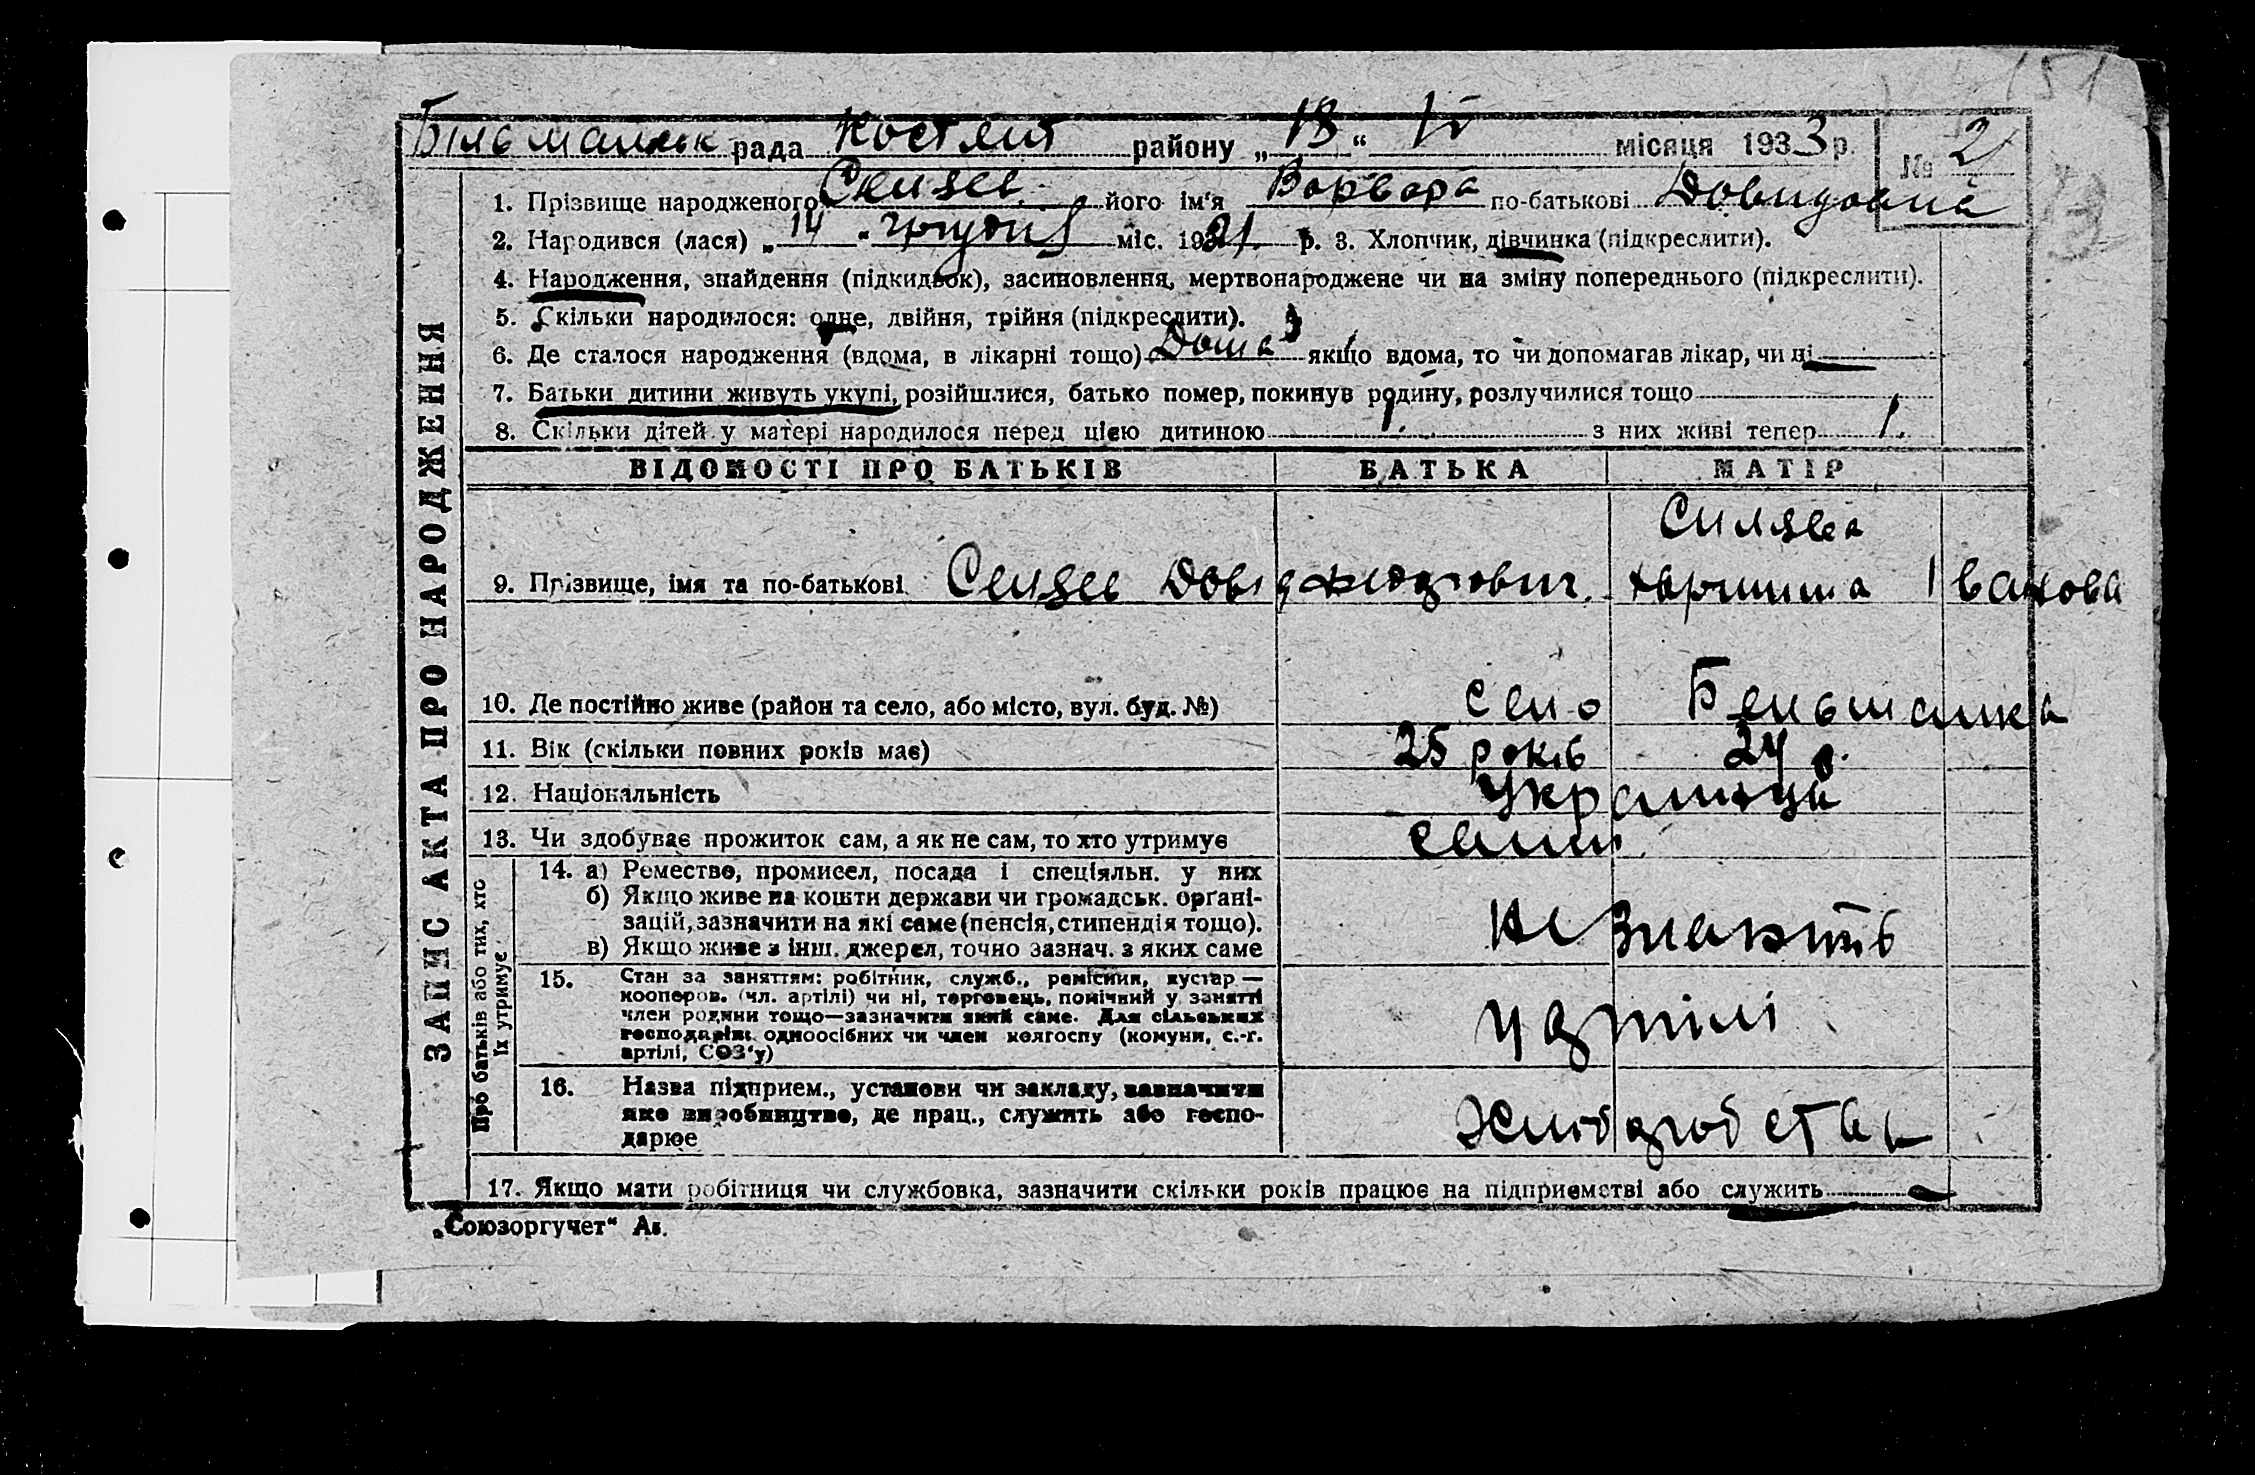 151
Більманськ рада Костянт району „18“ IV місяця 1933 р. № 2
1. Прізвище народженого Силяев його ім'я Варвара по-батькові Довидовна
2. Народився (лася) „14“ грудня міс. 1931 р. 3. Хлопчик, дівчинка (підкреслити).
4. Народження, знайдення (підкидьок), засиновлення, мертвонароджене чи на зміну попереднього (підкреслити).
5. Скільки народилося: одне, двійня, трійня (підкреслити).
6. Де сталося народження (вдома, в лікарні тощо) Дома якщо вдома, то чи допомагав лікар, чи ні
7. Батьки дитини живуть укупі, розійшлися, батько помер, покинув родину, розлучилися тощо
8. Скільки дітей у матері народилося перед цією дитиною 1. з них живі тепер 1.
ЗАПИС АКТА ПРО НАРОДЖЕННЯ
ВІДОМОСТІ ПРО БАТЬКІВ БАТЬКА МАТІР
Силяева
9. Прізвище, імя та по-батькові Силяев Довид Івanова
10. Де постійно живе (район та село, або місто, вул. буд. №) село Бельманка
11. Вік (скільки повних років має) 25 років 24 р.
12. Національність Українци
13. Чи здобуває прожиток сам, а як не сам, то хто утримує сами
Про батьків або тих, хто їх утримує
14. а) Ремество, промисел, посада і спеціяльн. у них
б) Якщо живе на кошти держави чи громадськ. орґані-
зацій, зазначити на які саме (пенсія, стипендія тощо).
в) Якщо живе з інш. джерел, точно зазнач. з яких саме не знають
15. Стан за заняттям: робітник, служб., ремісник, кустар —
кооперов. (чл. артілі) чи ні, торговець, помічний у занятті
член родини тощо—зазначити який саме. Для сільських
господарів: одноосібних чи член колгоспу (комуни, с.-г.
артілі, СОЗ'у) у артілі
16. Назва підприєм., установи чи закладу, зазначити
яке виробництво, де прац., служить або госпо-
дарює хлиборобства
17. Якщо мати робітниця чи службовка, зазначити скільки років працює на підприємстві або служить
„Союзоргучет“ Ав.